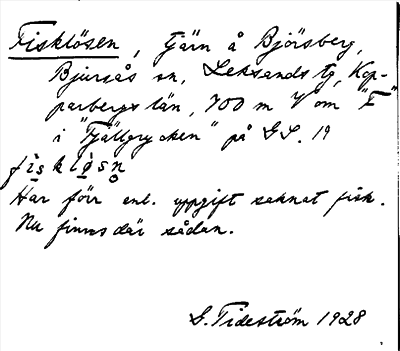 Fisklösen, tjärn å Björsberg,
Bjursås sn, Leksands tg, Kop-
parbergs län, 700 m V om "F"
i "Fjällgrycken" på GS. 19
fìsklösn̥
Har förr enl. uppgift saknat fisk.
Nu finns där sådan.
G. Tideström 1928